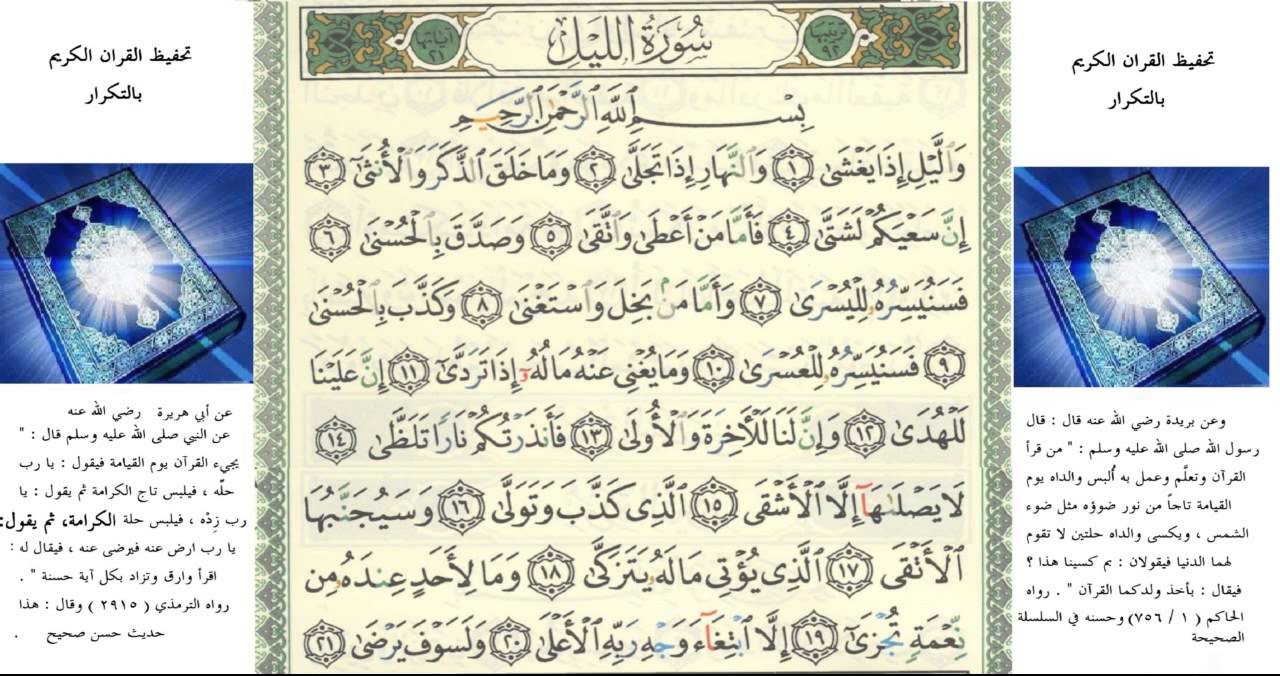 تحفيظ القران الكريم
بالتكرار
وعن بريدة رضي الله عنه قال : قال
رسول الله صلى الله عليه وسلم : " من قرأ
القرآن وتعلَّم وعمل به أُلبس والداه يوم
القيامة تاجاً من نور ضوؤه مثل ضوء
الشمس ، ويكسى والداه حلتين لا تقوم
لهما الدنيا فيقولان : بم كسينا هذا ؟
فيقال : بأخذ ولدكما القرآن " . رواه
الحاكم ( ١ / ٧٥٦) وحسنه في السلسلة
الصحيحة
ترتيبها ٩٢ سُورَةُ اللَّيْلِ آياتها ٢١
بِسْمِ ٱللَّهِ ٱلرَّحْمَٰنِ ٱلرَّحِيمِ
وَٱلَّيْلِ إِذَا يَغْشَىٰ ١ وَٱلنَّهَارِ إِذَا تَجَلَّىٰ ٢ وَمَا خَلَقَ ٱلذَّكَرَ وَٱلْأُنثَىٰٓ ٣
إِنَّ سَعْيَكُمْ لَشَتَّىٰ ٤ فَأَمَّا مَنْ أَعْطَىٰ وَٱتَّقَىٰ ٥ وَصَدَّقَ بِٱلْحُسْنَىٰ ٦
فَسَنُيَسِّرُهُۥ لِلْيُسْرَىٰ ٧ وَأَمَّا مَنۢ بَخِلَ وَٱسْتَغْنَىٰ ٨ وَكَذَّبَ بِٱلْحُسْنَىٰ
٩ فَسَنُيَسِّرُهُۥ لِلْعُسْرَىٰ ١٠ وَمَا يُغْنِى عَنْهُ مَالُهُۥٓ إِذَا تَرَدَّىٰٓ ١١ إِنَّ عَلَيْنَا
لَلْهُدَىٰ ١٢ وَإِنَّ لَنَا لَلْـَٔاخِرَةَ وَٱلْأُولَىٰ ١٣ فَأَنذَرْتُكُمْ نَارًا تَلَظَّىٰ ١٤
لَا يَصْلَىٰهَآ إِلَّا ٱلْأَشْقَى ١٥ ٱلَّذِى كَذَّبَ وَتَوَلَّىٰ ١٦ وَسَيُجَنَّبُهَا
ٱلْأَتْقَى ١٧ ٱلَّذِى يُؤْتِى مَالَهُۥ يَتَزَكَّىٰ ١٨ وَمَا لِأَحَدٍ عِندَهُۥ مِن
نِّعْمَةٍ تُجْزَىٰٓ ١٩ إِلَّا ٱبْتِغَآءَ وَجْهِ رَبِّهِ ٱلْأَعْلَىٰ ٢٠ وَلَسَوْفَ يَرْضَىٰ ٢١
تحفيظ القران الكريم
بالتكرار
عن أبي هريرة رضي الله عنه
عن النبي صلى الله عليه وسلم قال : "
يجيء القرآن يوم القيامة فيقول : يا رب
حلّه ، فيلبس تاج الكرامة ثم يقول : يا
رب زِدْه ، فيلبس حلة الكرامة، ثم يقول:
يا رب ارض عنه فيرضى عنه ، فيقال له :
اقرأ وارق وتزاد بكل آية حسنة " .
رواه الترمذي ( ٢٩١٥ ) وقال : هذا
حديث حسن صحيح .